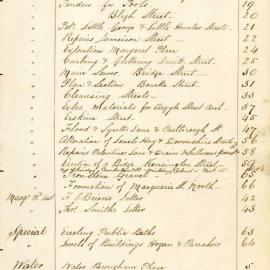 " Tenders for Tools 19
" Bligh Street 20
" Pet. Little George & Little Hunter Streets 21
" Repairs Jamieson Street 22
" Extention Margaret Place 24
" Curbing & Guttering Druitt Street 25
" Main Sewer Bridge Street 30
" Plan & Section Banks Street 31
" Cleansing Streets 33
" Extra Materials for Argyle Street Sewer 37
" Erskine Street 45
" Flood & Lyntts Lane & Castlereagh St 47
" Alteration of Levels Hay & Devonshire Streets 56
" Repairs Valentine Lane & Drain 58
" Erection of a Bridge Kensington Street 59
" Iron Stone 65
" Formation of Macquarie St. North 66
Macq W. Ext O'Briens Letter 42
" Thos. Smiths Letter 43
Special Erecting Public Baths 63
" Smell of Buildings Hogan & Panahow 64
Water Water Brougham Place 5